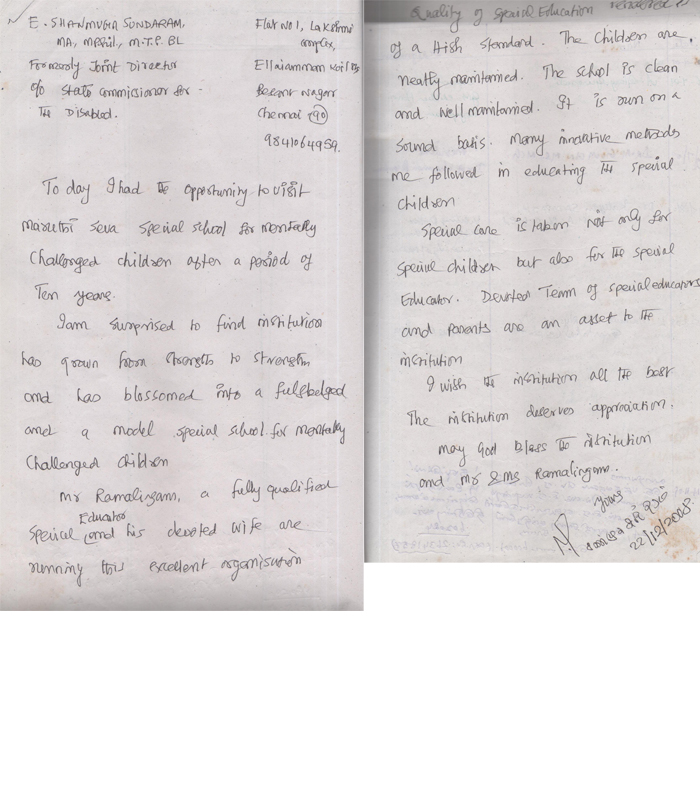 E. SHANMUGA SUNDARAM,
MA, MPhil, M.T.P. BL
Formerly Joint Director
o/o State Commissionar for
The Disabled.
Flat No 1, Lakshmi
complex,
Ellaiamman Koil
Besant Nagar
Chennai 90
9841064959.
To day I had the opportunity to visit
Maruthi Seva Special school for mentally
challenged children after a period of
Ten years.
I am surprised to find institution
has grown from strength to strength
and has blossomed into a fullbelged
and a model special school for mentally
challenged children
Mr Ramalingam, a fully qualified
Special Educator and his devoted wife are
running this excellent organisation
Quality of Special Education rendered is
of a High Standard. The Children are
neatly maintained. The school is clean
and well maintained. It is run on a
sound basis. Many innovative methods
are followed in educating the special
children
Special care is taken not only for
special children but also for the special
Educator. Devoted Team of special educators
and parents are an asset to the
institution
I wish the institution all the best
The institution deserves appreciation.
may God Bless the institution
and Mr & Ms Ramalingam.
yours
22/12/2008